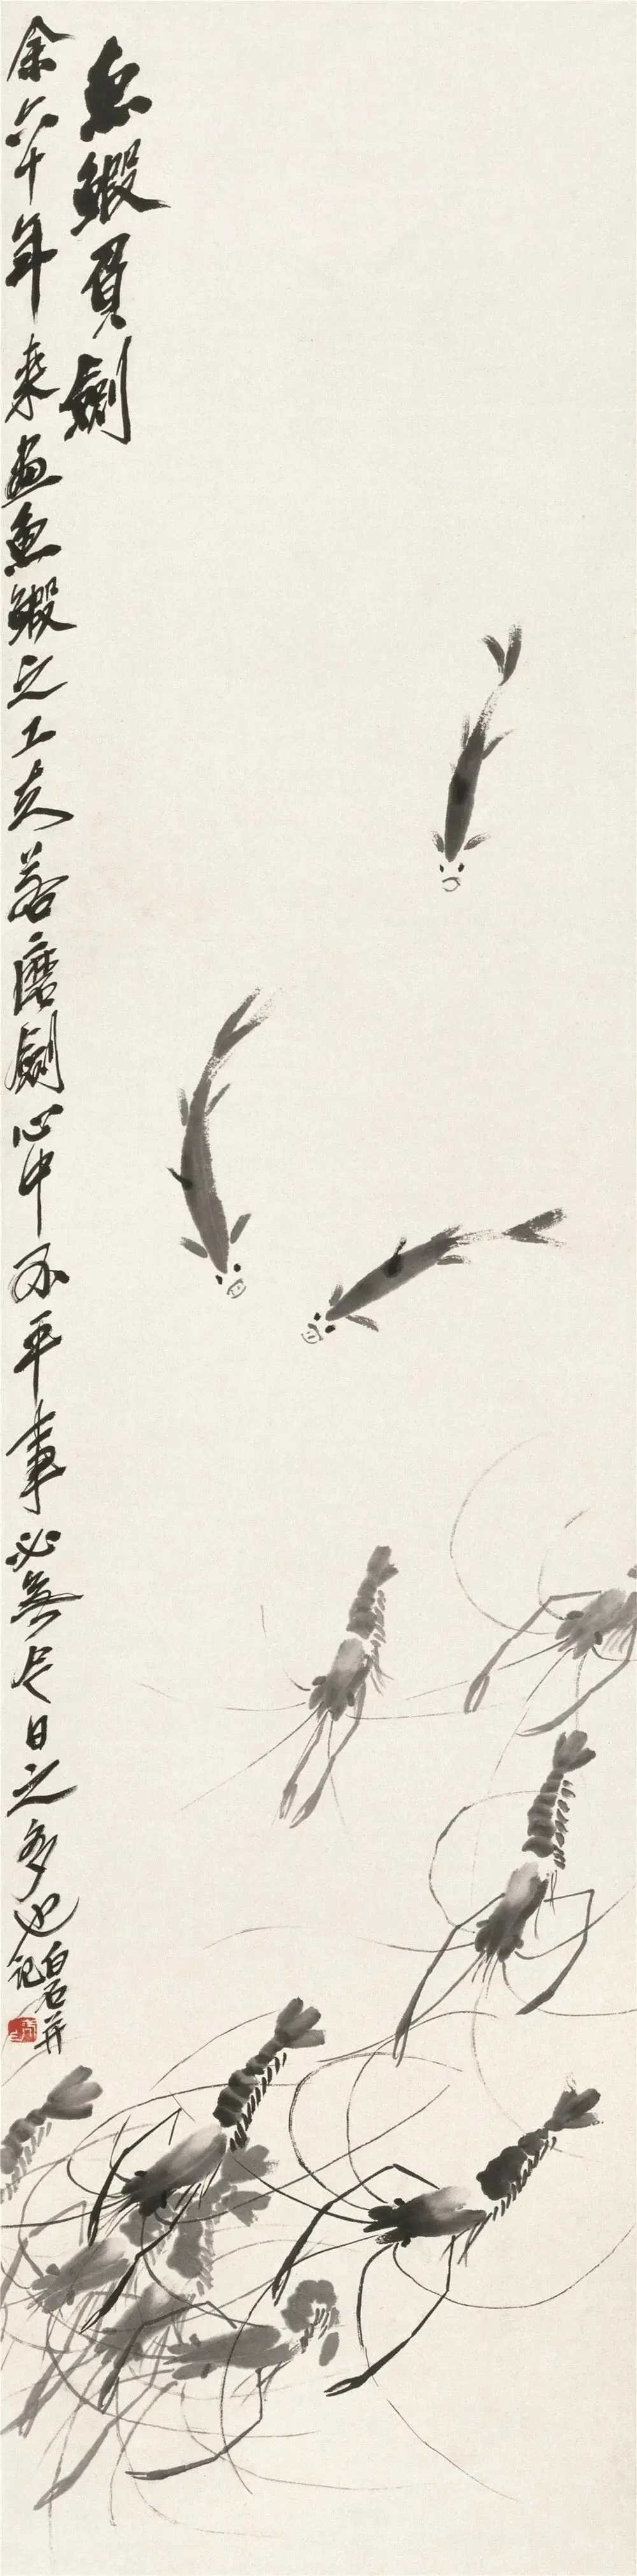 魚鰕負劍
余六十年來畫魚鰕之工夫若磨劍心中不平事必無今日之多也
白石并
記